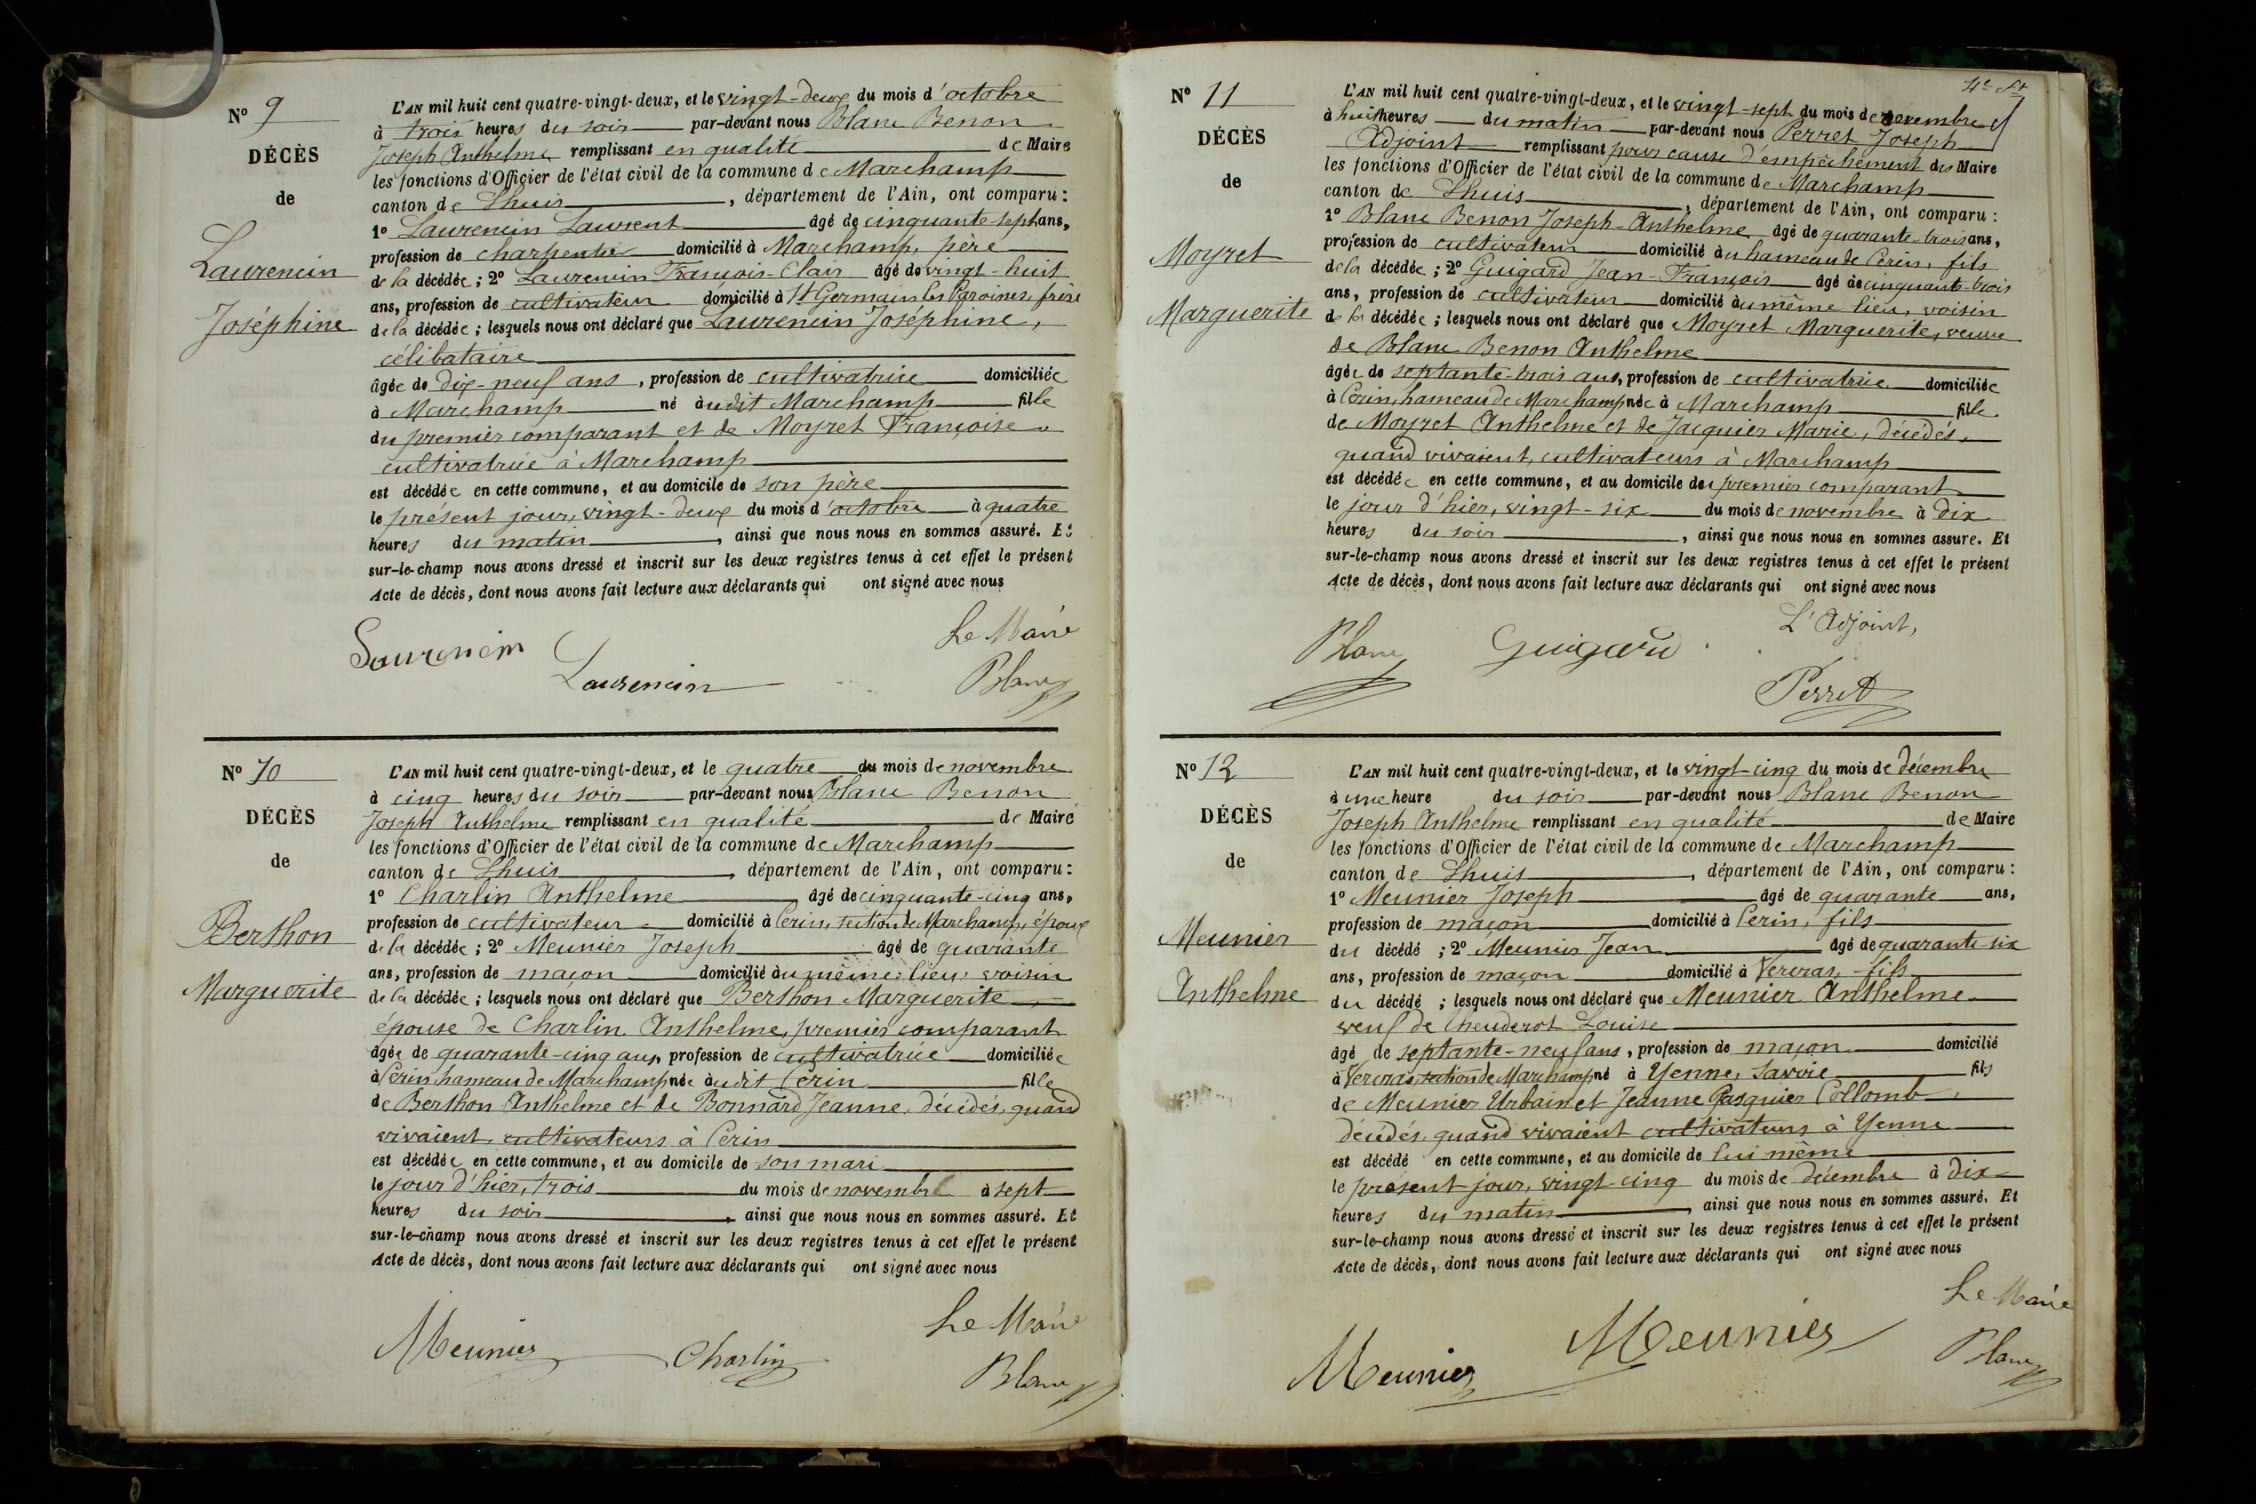 Nº 9
DÉCÈS
de
Laurencin
Joséphine
L'AN mil huit cent quatre-vingt-deux, et le vingt-deux du mois d'octobre
à trois heures du soir par-devant nous Blanc Benon
Joseph Anthelme remplissant en qualité de Maire
les fonctions d'Officier de l'état civil de la commune de Marchamp
canton de Lhuis, département de l'Ain, ont comparu :
1º Laurencin Laurent âgé de cinquante-sept ans,
profession de charpentier domicilié à Marchamp, père
de la décédée ; 2º Laurencin François-Clair âgé de vingt-huit
ans, profession de cultivateur domicilié à St Germain les Paroisses, frère
de la décédée ; lesquels nous ont déclaré que Laurencin Joséphine,
célibataire
âgée de dix-neuf ans, profession de cultivatrice domiciliée
à Marchamp né audit Marchamp fille
du premier comparant et de Moyret Françoise
cultivatrice à Marchamp
est décédée en cette commune, et au domicile de son père
le présent jour, vingt-deux du mois d'octobre à quatre
heures du matin, ainsi que nous nous en sommes assuré. Et
sur-le-champ nous avons dressé et inscrit sur les deux registres tenus à cet effet le présent
Acte de décès, dont nous avons fait lecture aux déclarants qui ont signé avec nous
Le Maire
Laurencin
Laurencin
Blanc
Nº 10
DÉCÈS
de
Berthon
Marguerite
L'AN mil huit cent quatre-vingt-deux, et le quatre du mois de novembre
à cinq heures du soir par-devant nous Blanc Benon
Joseph Anthelme remplissant en qualité de Maire
les fonctions d'Officier de l'état civil de la commune de Marchamp
canton de Lhuis, département de l'Ain, ont comparu :
1º Charlin Anthelme âgé de cinquante-cinq ans,
profession de cultivateur domicilié à Cerin, section de Marchamp, époux
de la décédée ; 2º Meunier Joseph âgé de quarante
ans, profession de maçon domicilié au même lieu, voisin
de la décédée ; lesquels nous ont déclaré que Berthon Marguerite,
épouse de Charlin Anthelme, premier comparant
âgée de quarante-cinq ans, profession de cultivatrice domiciliée
à Cerin hameau de Marchamp née audit Cerin fille
de Berthon Anthelme et de Bonnard Jeanne, décédés, quand
vivaient cultivateurs à Cerin
est décédée en cette commune, et au domicile de son mari
le jour d'hier, trois du mois de novembre à sept
heures du soir, ainsi que nous nous en sommes assuré. Et
sur-le-champ nous avons dressé et inscrit sur les deux registres tenus à cet effet le présent
Acte de décès, dont nous avons fait lecture aux déclarants qui ont signé avec nous
Le Maire
Meunier
Charlin
Blanc
4e
Nº 11
DÉCÈS
de
Moyret
Marguerite
L'AN mil huit cent quatre-vingt-deux, et le vingt-sept du mois de novembre
à huit heures du matin par-devant nous Perret Joseph
Adjoint remplissant pour cause d'empêchement du Maire
les fonctions d'Officier de l'état civil de la commune de Marchamp
canton de Lhuis, département de l'Ain, ont comparu :
1º Blanc Benon Joseph-Anthelme âgé de quarante-trois ans,
profession de cultivateur domicilié au hameau de Cerin, fils
de la décédée ; 2º Guigard Jean-François âgé de cinquante-trois
ans, profession de cultivateur domicilié au même lieu, voisin
de la décédée ; lesquels nous ont déclaré que Moyret Marguerite, veuve
de Blanc Benon Anthelme
âgée de septante-trois ans, profession de cultivatrice domiciliée
à Cerin, hameau de Marchamp née à Marchamp fille
de Moyret Anthelme et de Jacquier Marie, décédés,
quand vivaient, cultivateurs à Marchamp
est décédée en cette commune, et au domicile du premier comparant
le jour d'hier, vingt-six du mois de novembre à dix
heures du soir, ainsi que nous nous en sommes assuré. Et
sur-le-champ nous avons dressé et inscrit sur les deux registres tenus à cet effet le présent
Acte de décès, dont nous avons fait lecture aux déclarants qui ont signé avec nous
L'Adjoint,
Blanc
Guigard
Perret
Nº 12
DÉCÈS
de
Meunier
Anthelme
L'AN mil huit cent quatre-vingt-deux, et le vingt-cinq du mois de décembre
à une heure du soir par-devant nous Blanc Benon
Joseph Anthelme remplissant en qualité de Maire
les fonctions d'Officier de l'état civil de la commune de Marchamp
canton de Lhuis, département de l'Ain, ont comparu :
1º Meunier Joseph âgé de quarante ans,
profession de maçon domicilié à Cerin, fils
du décédé ; 2º Meunier Jean âgé de quarante-six
ans, profession de maçon domicilié à Vercras, fils
du décédé ; lesquels nous ont déclaré que Meunier Anthelme
veuf de Cheuderot Louise
âgé de septante-neuf ans, profession de maçon domicilié
à Vercras, section de Marchamp né à Yenne, Savoie fils
de Meunier Urbain et Jeanne Pasquier Collomb,
décédés, quand vivaient cultivateurs à Yenne
est décédé en cette commune, et au domicile de lui même
le présent jour, vingt-cinq du mois de décembre à dix
heures du matin, ainsi que nous nous en sommes assuré. Et
sur-le-champ nous avons dressé et inscrit sur les deux registres tenus à cet effet le présent
Acte de décès, dont nous avons fait lecture aux déclarants qui ont signé avec nous
Le Maire
Meunier
Meunier
Blanc